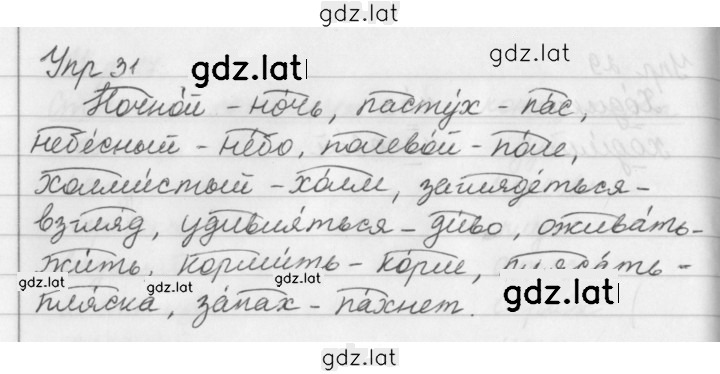 gdz.lat
Упр 31
gdz.lat
gdz.lat
Ночно́й - но́чь, пасту́х - па́с,
небе́сный - не́бо, полево́й - по́ле,
холми́стый - хо́лм, загляде́ться -
взгля́д, удивля́ться - ди́во, ожива́ть -
жи́ть, корми́ть - ко́рм, пляса́ть -
gdz.lat
gdz.lat
gdz.lat
gdz.lat
пля́ска, за́пах - па́хнет.
gdz.lat